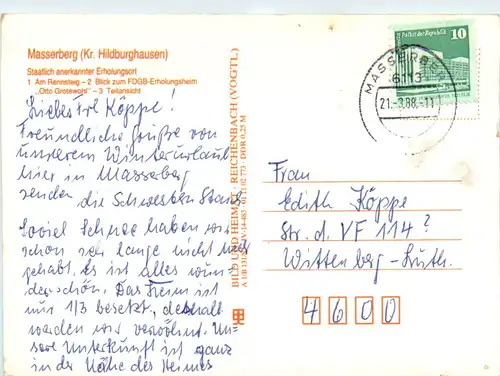 Masserberg (Kr. Hildburghausen)
Staatlich anerkannter Erholungsort
1 Am Rennsteig – 2 Blick zum FDGB-Erholungsheim
„Otto Grotewohl" – 3 Teilansicht
Liebes Frl Köppe!
Freundliche Grüße von
unserem Winterurlaub
hier in Masserberg
senden die Schwestern
Soviel Schnee haben wir
schon sehr lange nicht mehr
gehabt. Es ist alles wun-
derschön. Das Heim ist
nur 1/3 besetzt, deshalb
werden wir verwöhnt. Un-
sere Unterkunft ist ganz
in der Nähe des Heimes
BILD UND HEIMAT REICHENBACH (VOGTL)
DDR 0,25 M
Palast der Republik
10
MASSERBERG
6113
21.-3.88.-11
Frau
Edith Köppe
Str. d. VF 114?
Wittenberg-Luth.
4600